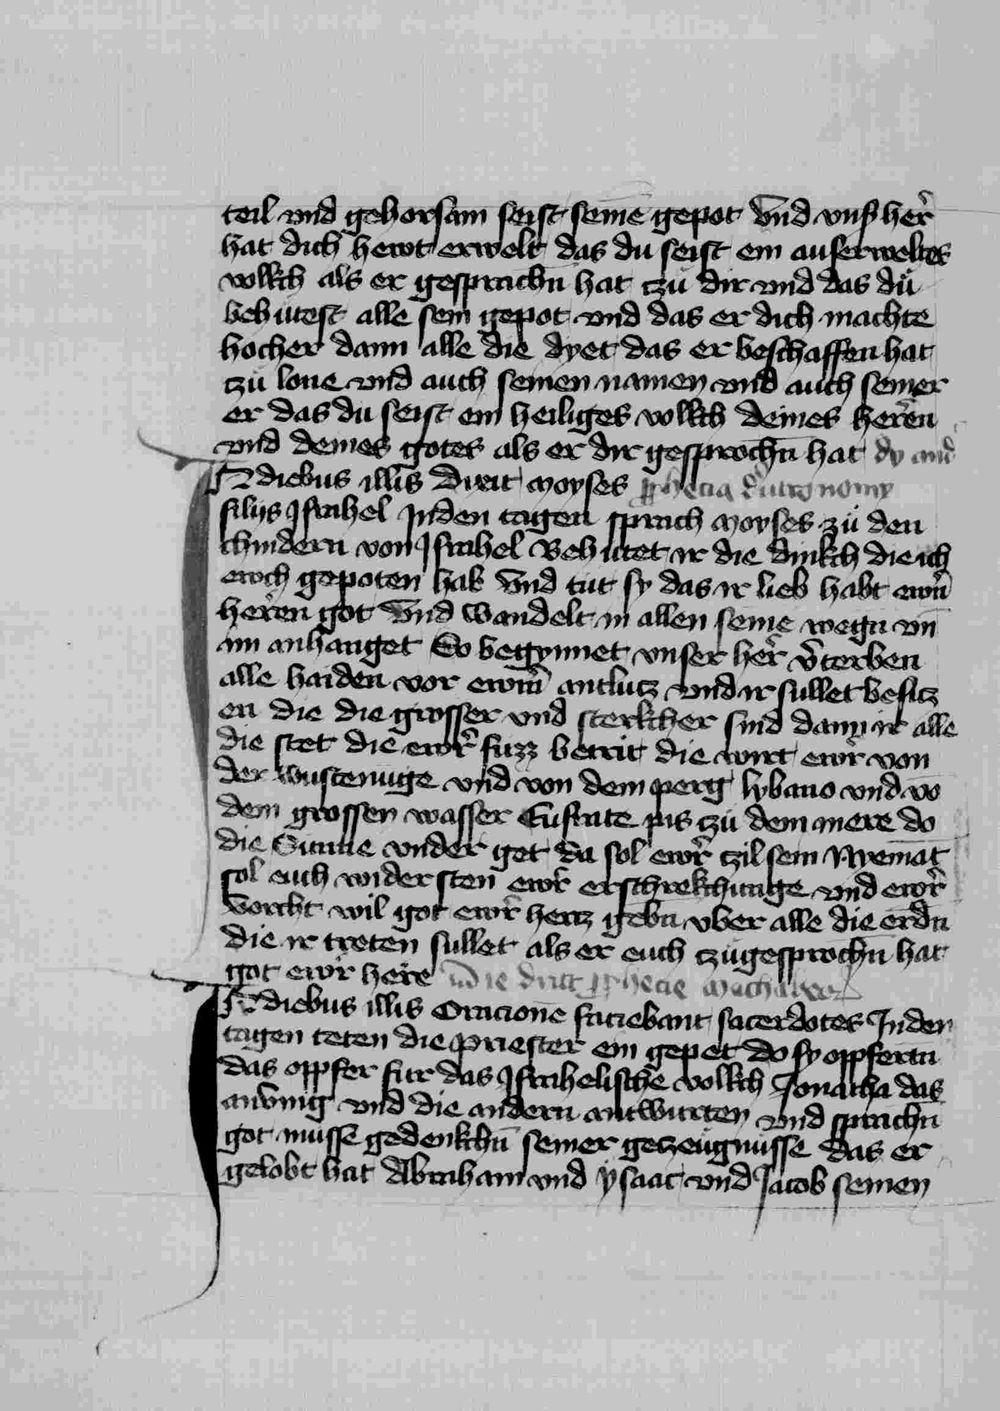 teil vnd gehorsam seist seinē gepot Vnd vnß her̄
hat dich hewt erwelt das du seist ein auserweltes
vollkch als er gesprachn̄ hat tzů dir vnd das dů
behutest alle sein gepot vnd das er dich machte
hocher dann alle die dyet das er beschaffen hat
tzů lone vnd auch seinen namen vnd auch seiner
er das du seist ein heiliges vollkch deines herren
vnd deines gotes als er dir gesprochn̄ hat dy and
IN diebus illis Dixit moyses ꝓphecia deutronomy
filijs Israhel Inden tagen sprach moyses zů den
chindern von Israhel Behutet ir die dinkch die ich
ewch gepoten hab Vnd tut sy das ir lieb habt ewrn̄
herren got Vnd wandelt in allen seinē wegn vn̄
im anhanget So begynnet vnser her̄ v̄terben
alle haiden vor ewrm̄ antlutz vnd ir sullet besitz
en die die grosser vnd sterkcher sind dann ir alle
die stet die ewr̄ fuzz betrit die wirt ewr̄ von
der wustenunge vnd von dem perg lybano vnd vō
dem grossen wasser Eufrate pis tzů dem mere do
die Sunne vnder get da sol ewr̄ tzil sein Nyemāt
sol euch widersten ewr̄ erschrekchunge vnd ewr̄
vorcht wil got ewr̄ hertz gebn̄ vber alle die erdn̄
die ir treten sullet als er euch tzůgesprochn̄ hat
got ewr̄ herre die dritt ꝓphecie machabeoꝝ
IN diebus illis Oracionē faciebant sacerdotes Inden
tagen teten die priester ein gepet do sy oppfertn̄
das oppfer fur das Israhelische vollkch Jonatha das
anving vnd die andern antwurten vnd sprachn̄
got musse gedenkchn̄ seiner gezeugnusse das er
gelobt hat Abraham vnd ysaac vnd Jacob seinen